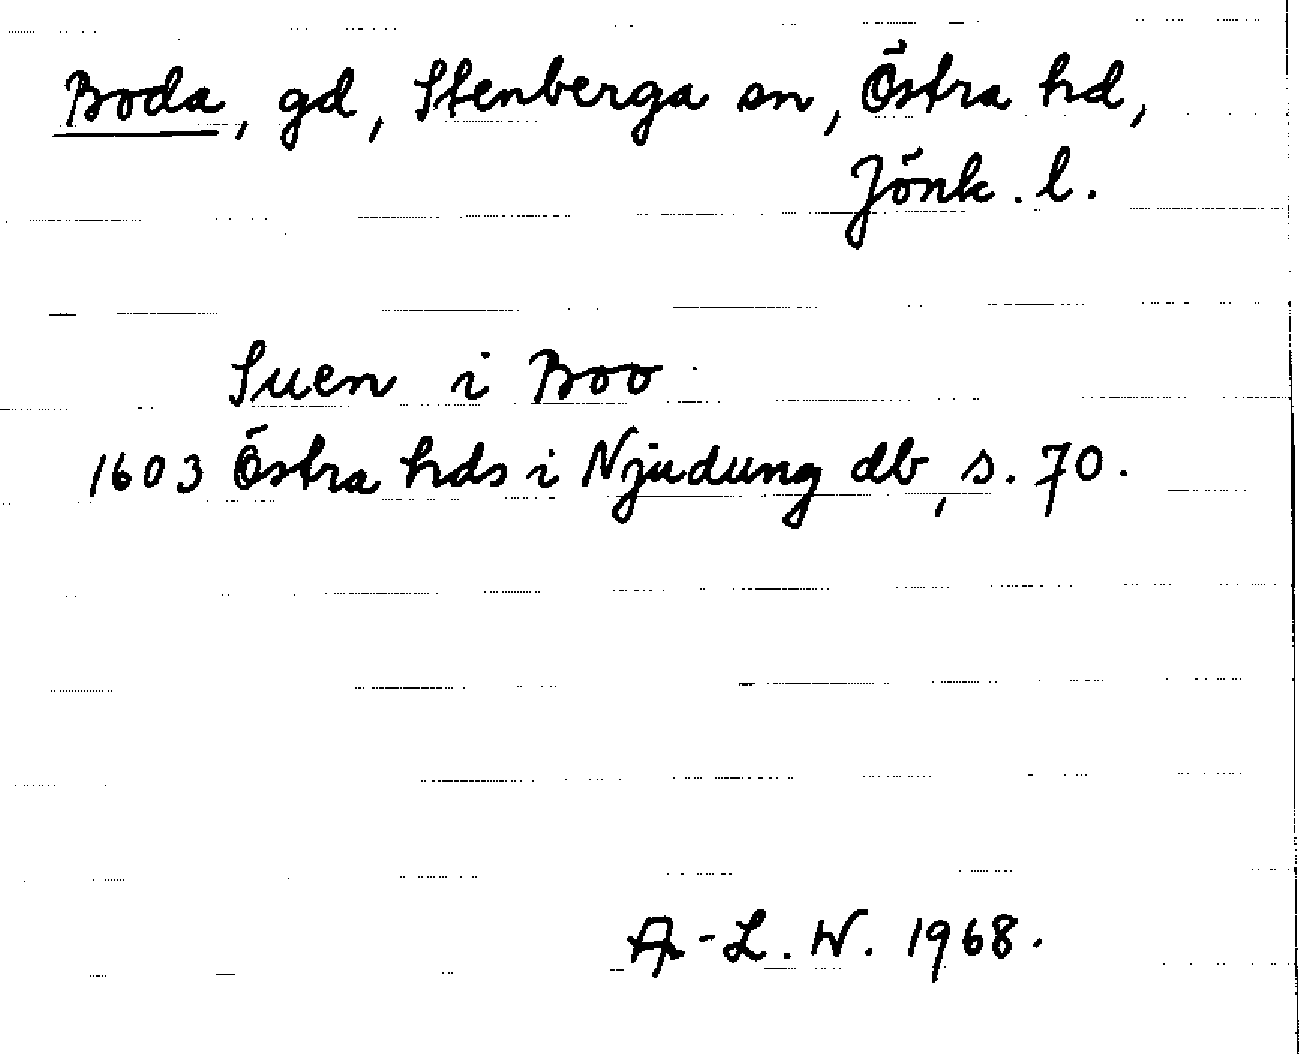 Boda, gd, Stenberga sn, Östra hd,
Jönk. l.
Suen i Boo
1603 Östra hds i Njudung db, s. 70.
A-L. W. 1968.